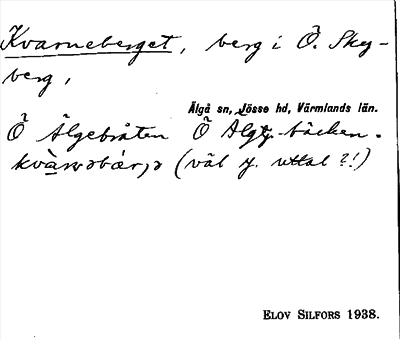 Kvarneberget, berg i Ö. Sky-
berg,
Älgå sn, Jösse hd, Värmlands län.
Ö Älgebråten Ö Älgtj.bäcken.
(väl y. uttal ?!)
ELOV SILFORS 1938.